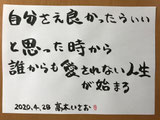 自分さえ良かったらいい
と思った時から
誰からも愛されない人生
が始まる
2020.4.28 高木いさお